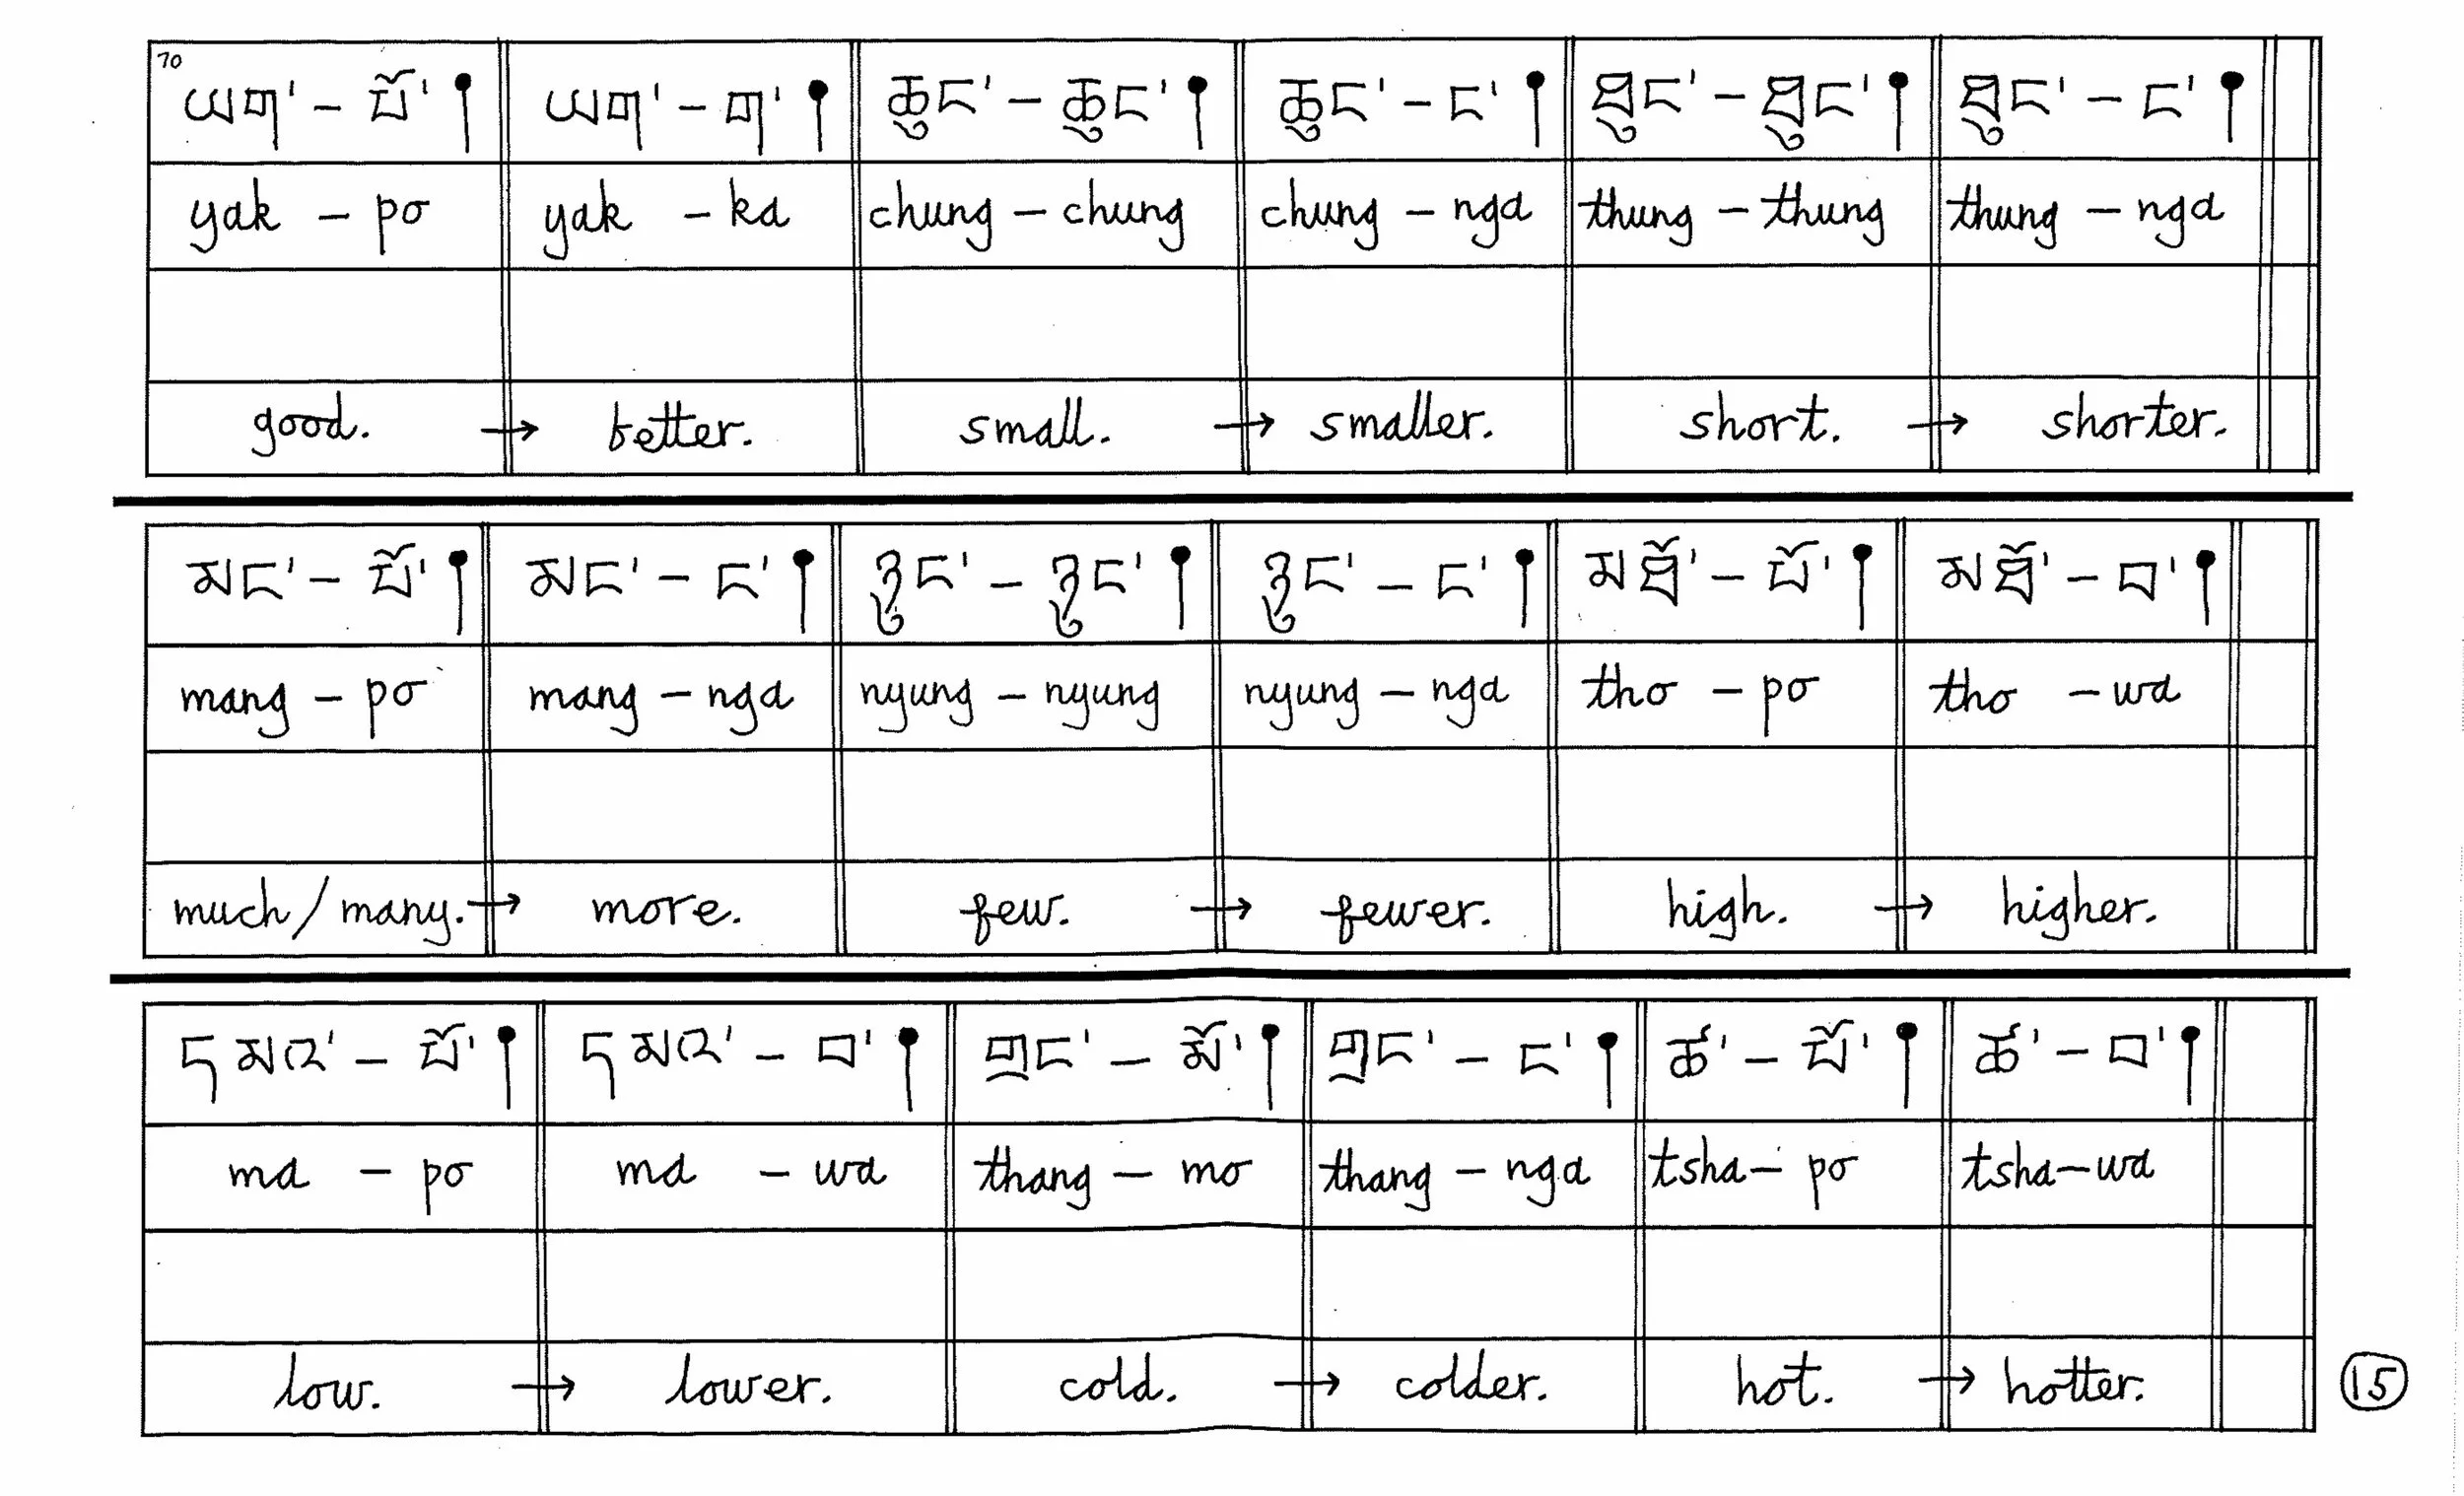 70
ཡག་ – པོ་ །	ཡག་ – ག་ །	ཆུང་ – ཆུང་ །	ཆུང་ – ང་ །	ཐུང་ – ཐུང་ །	ཐུང་ – ང་ །
yak – po	yak – ka	chung – chung	chung – nga	thung – thung	thung – nga
good. → better.	small. → smaller.	short. → shorter.
མང་ – པོ་ །	མང་ – ང་ །	ཉུང་ – ཉུང་ །	ཉུང་ – ང་ །	མཐོ་ – པོ་ །	མཐོ་ – བ་ །
mang – po	mang – nga	nyung – nyung	nyung – nga	tho – po	tho – wa
much/many. → more.	few. → fewer.	high. → higher.
དམའ་ – པོ་ །	དམའ་ – བ་ །	གྲང་ – མོ་ །	གྲང་ – ང་ །	ཚ་ – པོ་ །	ཚ་ – བ་ །
ma – po	ma – wa	thang – mo	thang – nga	tsha – po	tsha – wa
low. → lower.	cold. → colder.	hot. → hotter.
15